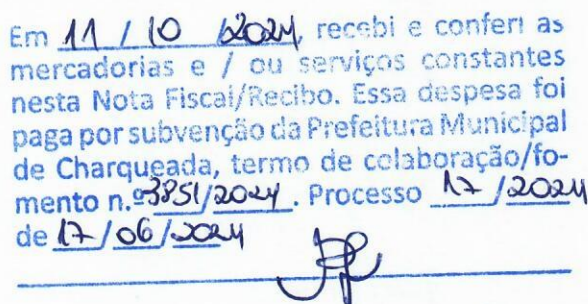 Em 11 / 10 / 2024, recebi e conferi as
mercadorias e / ou serviços constantes
nesta Nota Fiscal/Recibo. Essa despesa foi
paga por subvenção da Prefeitura Municipal
de Charqueada, termo de colaboração/fo-
mento n.º 3851/2024. Processo 17 / 2024
de 17 / 06 / 2024